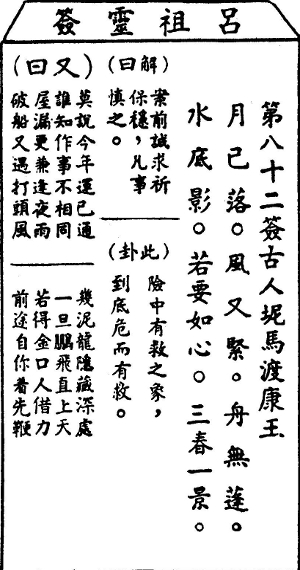 呂祖靈簽
第八十二簽古人坭馬渡康王
月已落。風又緊。舟無蓬。
水底影。若要如心。三春一景。
(曰解)
案前誠求祈
保穩，凡事
慎之。
(卦此)
險中有救之象，
到底危而有救。
(曰又)
莫說今年運已通
誰知作事不相同
屋漏更兼逢夜雨
破船又遇打頭風
幾泥龍隱藏深處
一旦鵬飛直上天
若得金口人借力
前途自你着先鞭